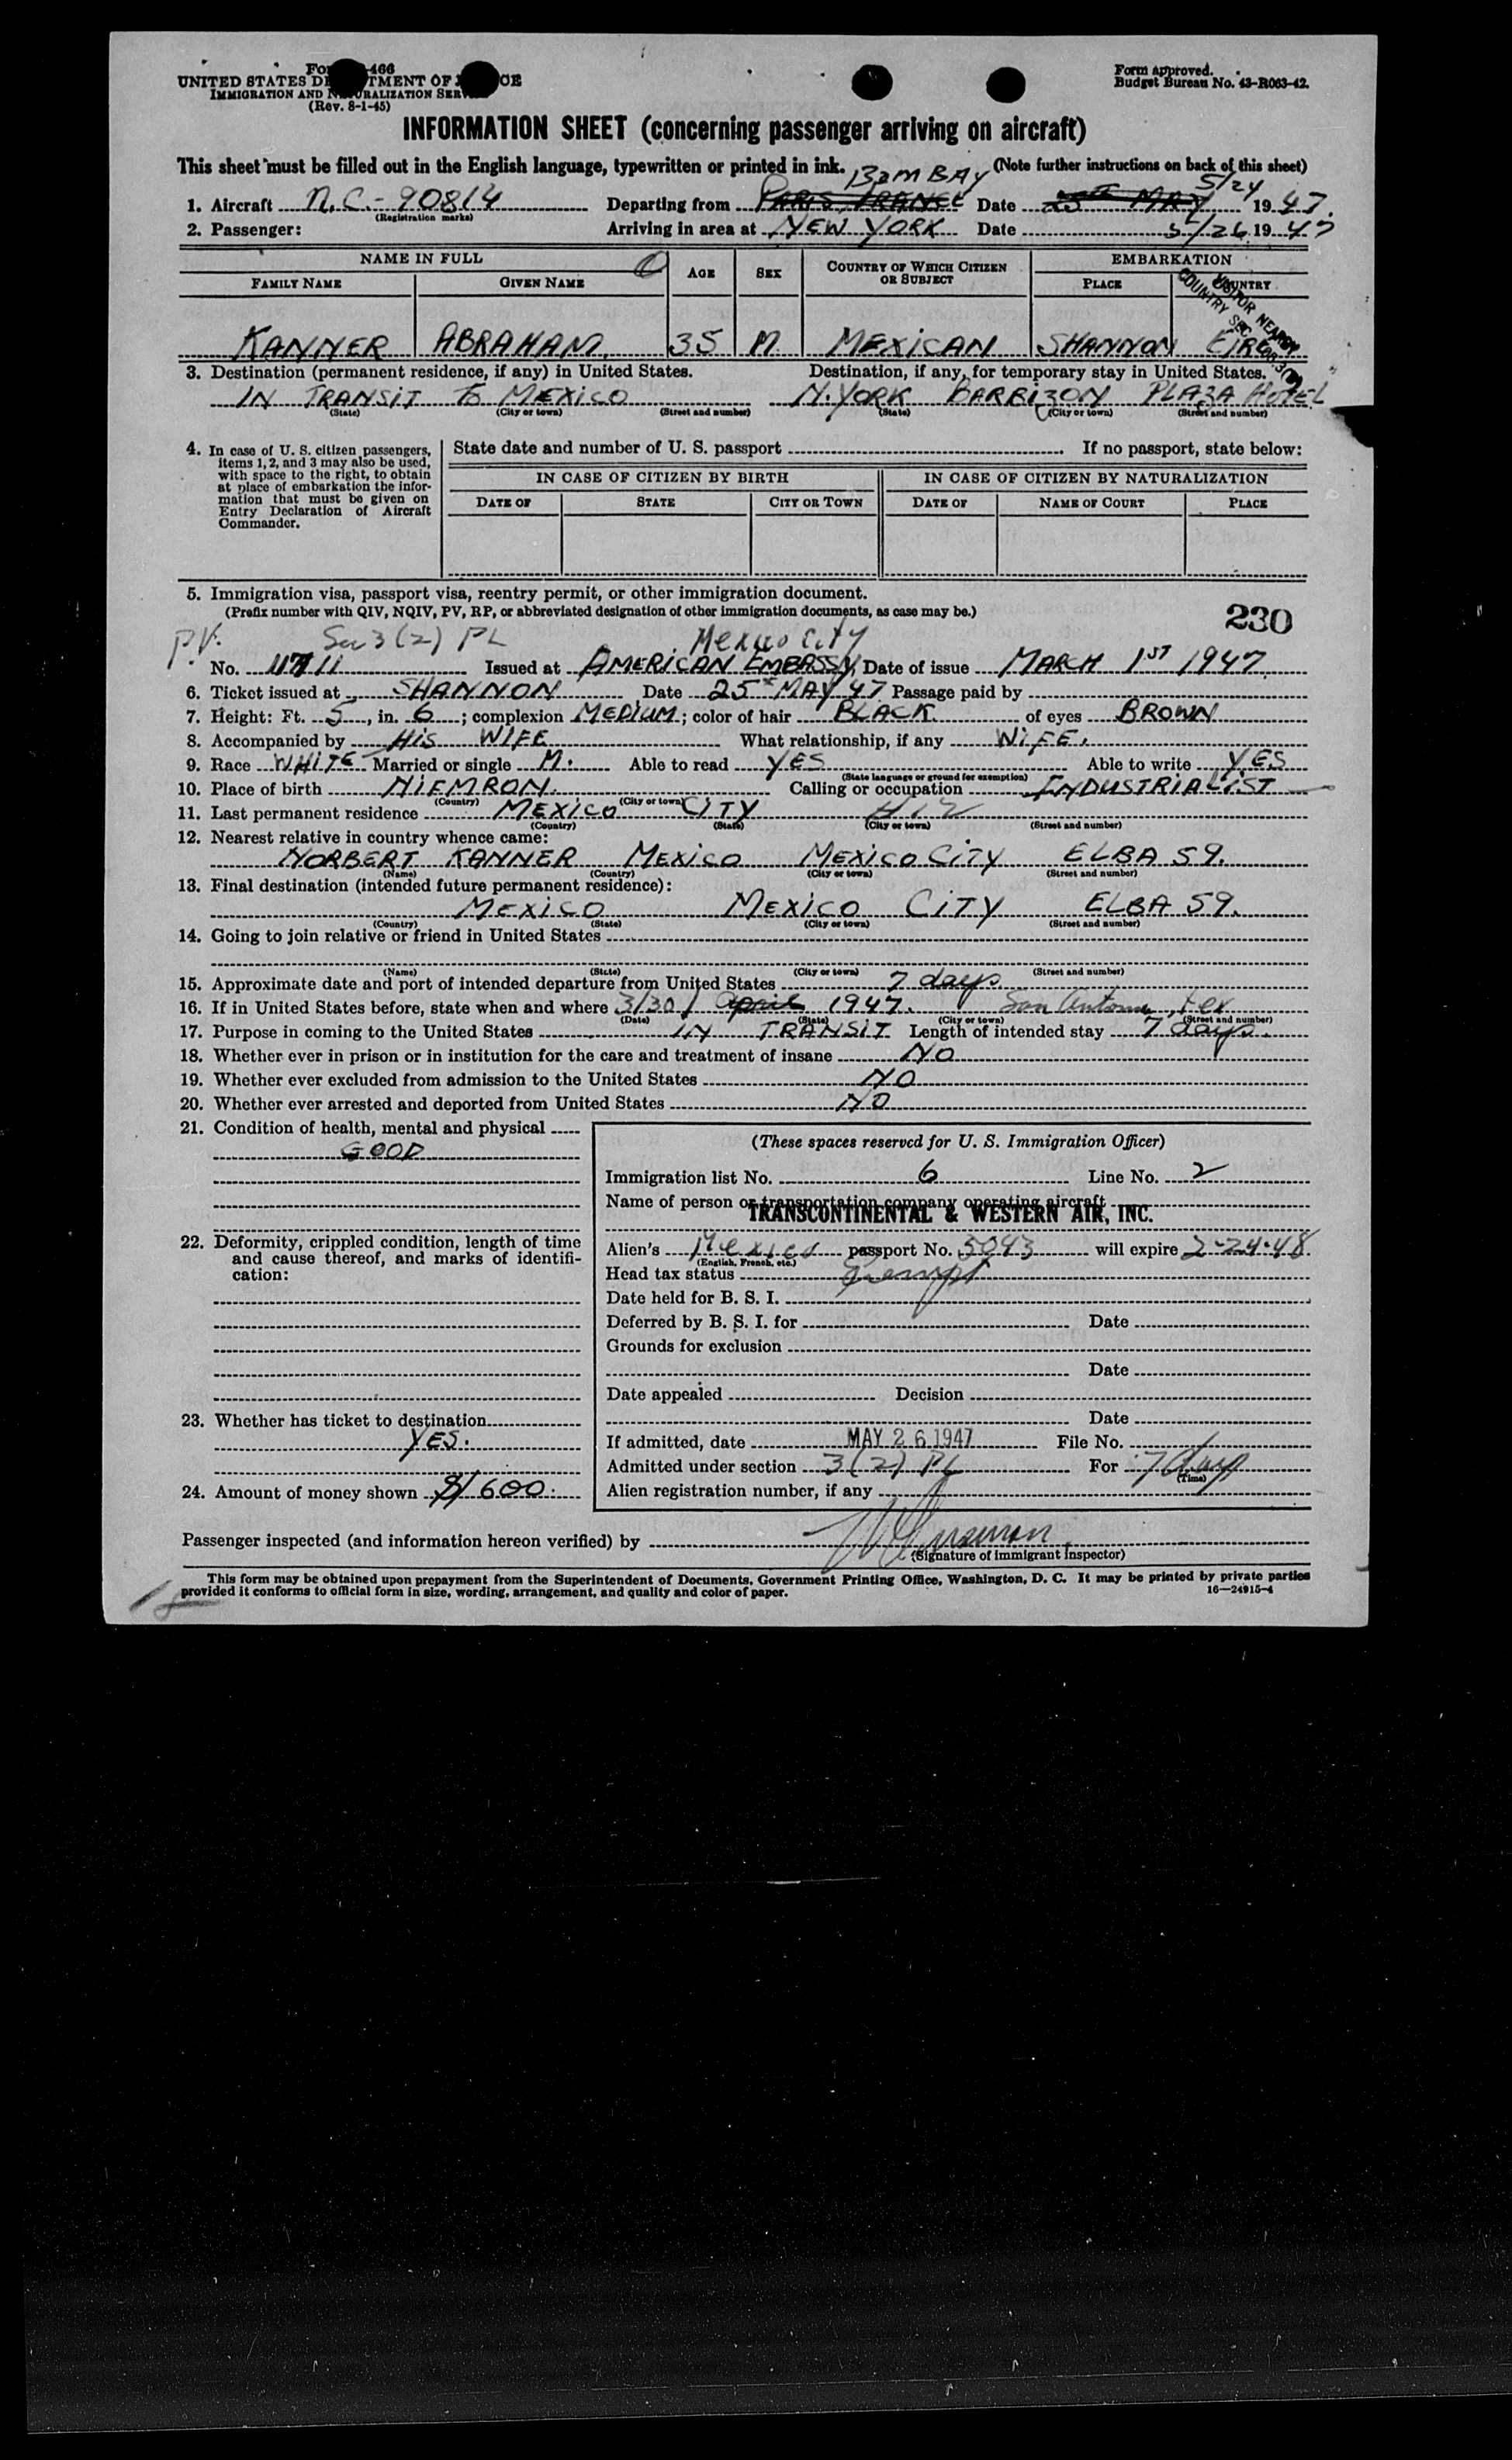 UNITED STATES DEPARTMENT OF JUSTICE
IMMIGRATION AND NATURALIZATION SERVICE
(Rev. 8-1-45)
Form approved.
Budget Bureau No. 43-R063-42.
INFORMATION SHEET (concerning passenger arriving on aircraft)
This sheet must be filled out in the English language, typewritten or printed in ink. (Note further instructions on back of this sheet)
BOMBAY 5/24
1. Aircraft N.C.-90814 Departing from PARIS, FRANCE Date 25TH MAY 1947.
(Registration marks)
2. Passenger: Arriving in area at NEW YORK Date 5/26 1947
NAME IN FULL AGE SEX COUNTRY OF WHICH CITIZEN OR SUBJECT EMBARKATION
FAMILY NAME GIVEN NAME PLACE COUNTRY
KANNER ABRAHAM 35 M MEXICAN SHANNON EIRE
3. Destination (permanent residence, if any) in United States. Destination, if any, for temporary stay in United States.
IN TRANSIT TO MEXICO N.YORK BARBIZON PLAZA HOTEL
(State) (City or town) (Street and number) (State) (City or town) (Street and number)
4. In case of U. S. citizen passengers, items 1, 2, and 3 may also be used, with space to the right, to obtain at place of embarkation the information that must be given on Entry Declaration of Aircraft Commander.
State date and number of U. S. passport If no passport, state below:
IN CASE OF CITIZEN BY BIRTH IN CASE OF CITIZEN BY NATURALIZATION
DATE OF STATE CITY OR TOWN DATE OF NAME OF COURT PLACE
5. Immigration visa, passport visa, reentry permit, or other immigration document.
(Prefix number with QIV, NQIV, PV, RP, or abbreviated designation of other immigration documents, as case may be.)
230
P.V. Sec 3 (2) PL Mexico City
No. 11711 Issued at AMERICAN EMBASSY, Date of issue MARCH 1ST 1947
6. Ticket issued at SHANNON Date 25TH MAY 47 Passage paid by
7. Height: Ft. 5, in. 6; complexion MEDIUM; color of hair BLACK of eyes BROWN
8. Accompanied by HIS WIFE What relationship, if any WIFE.
9. Race WHITE Married or single M. Able to read YES Able to write YES
(State language or ground for exemption)
10. Place of birth NIEMRON. Calling or occupation INDUSTRIALIST
(Country) (City or town)
11. Last permanent residence MEXICO CITY
(Country) (State) (City or town) (Street and number)
12. Nearest relative in country whence came:
NORBERT KANNER MEXICO MEXICO CITY ELBA 59.
(Name) (Country) (City or town) (Street and number)
13. Final destination (intended future permanent residence):
MEXICO MEXICO CITY ELBA 59.
(Country) (State) (City or town) (Street and number)
14. Going to join relative or friend in United States
(Name) (State) (City or town) (Street and number)
15. Approximate date and port of intended departure from United States 7 days
16. If in United States before, state when and where 3/30/ April 1947. San Antonio, Tex
(Date) (State) (City or town) (Street and number)
17. Purpose in coming to the United States IN TRANSIT Length of intended stay 7 days.
18. Whether ever in prison or in institution for the care and treatment of insane NO
19. Whether ever excluded from admission to the United States NO
20. Whether ever arrested and deported from United States NO
21. Condition of health, mental and physical
GOOD
(These spaces reserved for U. S. Immigration Officer)
Immigration list No. 6 Line No. 2
Name of person or transportation company operating aircraft
TRANSCONTINENTAL & WESTERN AIR, INC.
22. Deformity, crippled condition, length of time and cause thereof, and marks of identification:
Alien's Mexico passport No. 5043 will expire 2-24-48
(English, French, etc.)
Head tax status Exempt
Date held for B. S. I.
Deferred by B. S. I. for Date
Grounds for exclusion
Date
Date appealed Decision
Date
23. Whether has ticket to destination
YES.
If admitted, date MAY 26 1947 File No.
Admitted under section 3(2) PL For 7 days
(Time)
24. Amount of money shown $/600.
Alien registration number, if any
Passenger inspected (and information hereon verified) by
(Signature of immigrant inspector)
This form may be obtained upon prepayment from the Superintendent of Documents, Government Printing Office, Washington, D. C. It may be printed by private parties
provided it conforms to official form in size, wording, arrangement, and quality and color of paper. 16—24915-4